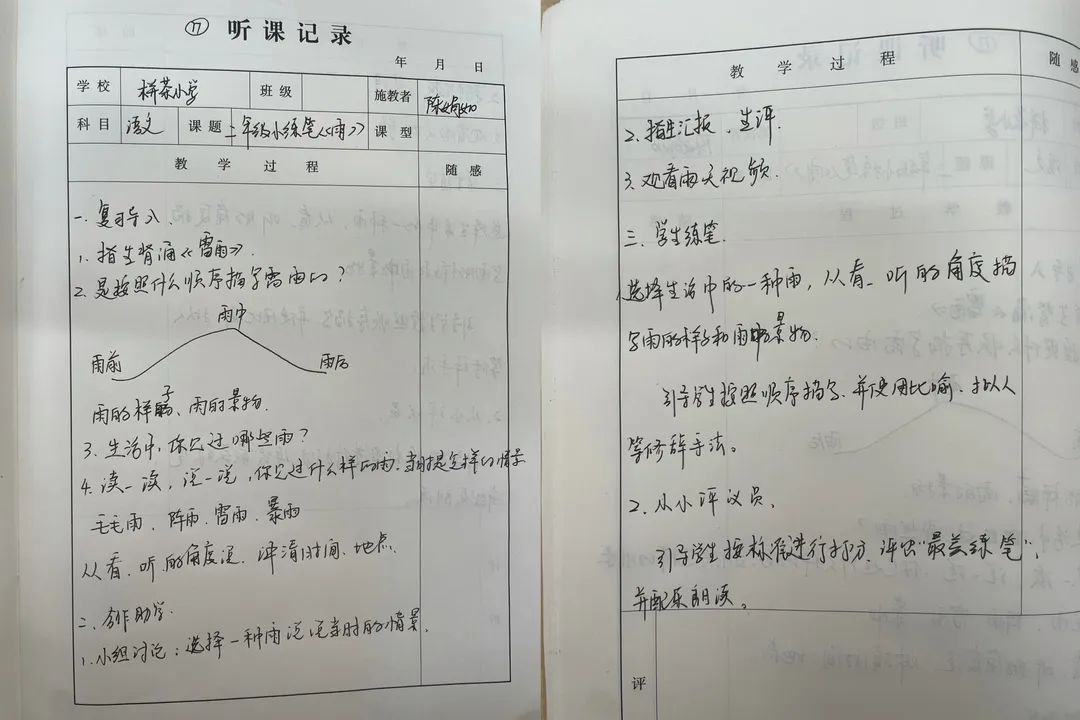 ⑰ 听课记录
年 月 日
学校 栟茶小学 班级 施教者
科目 语文 课题 二年级小练笔《雨》 课型
教学过程 随感
一、复习导入
1. 指生背诵《雷雨》.
2. 是按照什么顺序描写雷雨的？
雨中
雨前 雨后
雨的样子、雨的景物.
3. 生活中，你见过哪些雨？
4. 读一读，说一说，你见过什么样的雨.当时是怎样的情景
毛毛雨、阵雨、雷雨、暴雨
从看、听的角度说，讲清时间、地点.
二、合作助学.
1. 小组讨论：选择一种雨说说当时的情景.
教学过程 随感
2. 指生汇报，生评.
3. 观看雨天视频.
三、学生练笔.
1.选择生活中的一种雨，从看、听的角度描
写雨的样子和雨中景物.
引导学生按照顺序描写，并使用比喻、拟人
等修辞手法。
2. 从小评议员.
引导学生按标准进行打分，评出“最美练笔”，
并配乐朗读。
评